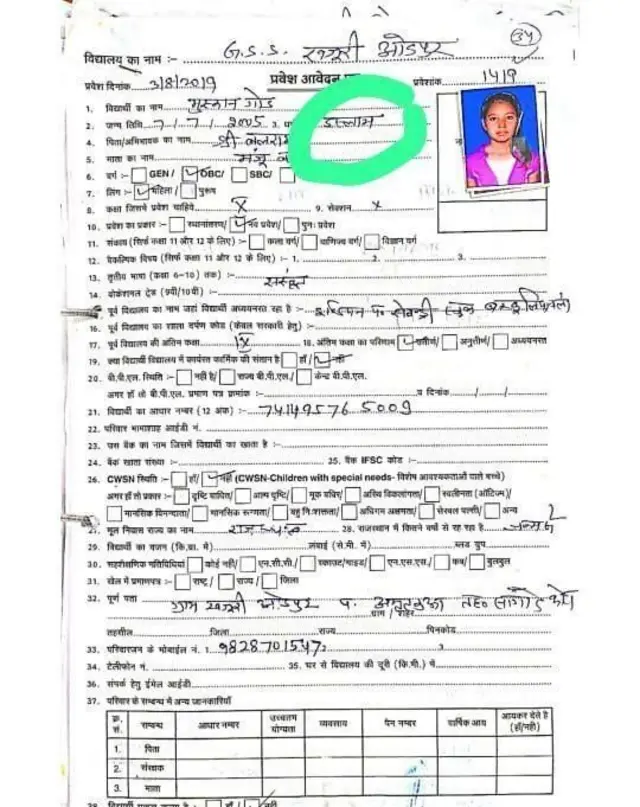 34
विद्यालय का नाम :- G.S.S. खजूरी ओडपुर
प्रवेश दिनांक 3/8/2019 प्रवेश आवेदन प्रवेशांक 1419
1. विद्यार्थी का नाम मुस्कान गौड
2. जन्म तिथि 7/7/2005 3. इस्लाम
4. पिता/अभिभावक का नाम श्री
5. माता का नाम मंजू
6. वर्ग :- GEN / OBC/ SBC/
7. लिंग :- महिला / पुरूष
8. कक्षा जिसमें प्रवेश चाहिये X 9. सेक्शन x
10. प्रवेश का प्रकार :- स्थानांतरण/ नव प्रवेश/ पुनः प्रवेश
11. संकाय (सिर्फ कक्षा 11 और 12 के लिए) :- कला वर्ग/ वाणिज्य वर्ग/ विज्ञान वर्ग
12. वैकल्पिक विषय (सिर्फ कक्षा 11 और 12 के लिए) :- 1. 2. 3.
13. तृतीय भाषा (कक्षा 6-10) तक) :- संस्कृत
14. वोकेशनल ट्रेड (9वी/10वी) :-
पूर्व विद्यालय का नाम जहां विद्यार्थी अध्ययनरत रहा है :-
16. पूर्व विद्यालय का शाला दर्पण कोड (केवल सरकारी हेतु) :-
17. पूर्व विद्यालय की अंतिम कक्षा IX 18. अंतिम कक्षा का परिणाम उत्तीर्ण/ अनुत्तीर्ण/ अध्ययनरत
19. क्या विद्यार्थी विद्यालय में कार्यरत कार्मिक की संतान है हाँ / नहीं
20. बी.पी.एल. स्थिति :- नहीं है/ राज्य बी.पी.एल./ केन्द्र बी.पी.एल.
अगर हाँ तो बी.पी.एल. प्रमाण पत्र क्रमांक :- व दिनांक / /
21. विद्यार्थी का आधार नम्बर (12 अंक) :- 741495765009
22. परिवार भामाशाह आईडी नं.
23. पास बैंक का नाम जिसमें विद्यार्थी का खाता है :-
24. बैंक खाता संख्या :- 25. बैंक IFSC कोड :-
26. CWSN स्थिति :- हाँ/ नहीं (CWSN-Children with special needs- विशेष आवश्यकताओं वाले बच्चे)
अगर हाँ तो प्रकार :- दृष्टि बाधित/ अल्प दृष्टि/ मूक बधिर/ अस्थि विकलांगता/ स्वलीनता (ऑटिज्म)/
मानसिक विमन्दता/ मानसिक रूग्णता/ बहु नि:शक्तता/ अधिगम अक्षमता/ सेरबल पाल्सी/ अन्य
27. मूल निवास राज्य का नाम राजस्थान 28. राजस्थान में कितने वर्षों से रह रहा है जन्म से
29. विद्यार्थी का वजन (कि.ग्रा. में) लंबाई (से.मी. में) ब्लड ग्रुप
30. सहशैक्षणिक गतिविधियां कोई नहीं/ एन.सी.सी./ स्काउट/गाइड/ एन.एस.एस./ कब/ बुलबुल
31. खेल में प्रमाणपत्र :- राष्ट्र/ राज्य / जिला
32. पूर्ण पता ग्राम खजूरी ओडपुर प. अमृतकुआ तह० सांगोद कोटा
ग्राम / शहर
तहसील जिला राज्य पिनकोड
33. परिवारजन के मोबाईल नं. 1. 9828701547 2 3
34. टेलीफोन नं. 35. घर से विद्यालय की दूरी (कि.मी.) में
36. संपर्क हेतु ईमेल आईडी
37. परिवार के सम्बन्ध में अन्य जानकारियाँ
क्र. सं. सम्बन्ध आधार नम्बर उच्चतम योग्यता व्यवसाय पेन नम्बर वार्षिक आय आयकर देते है (हाँ/नहीं)
1. पिता
2. संरक्षक
3. माता